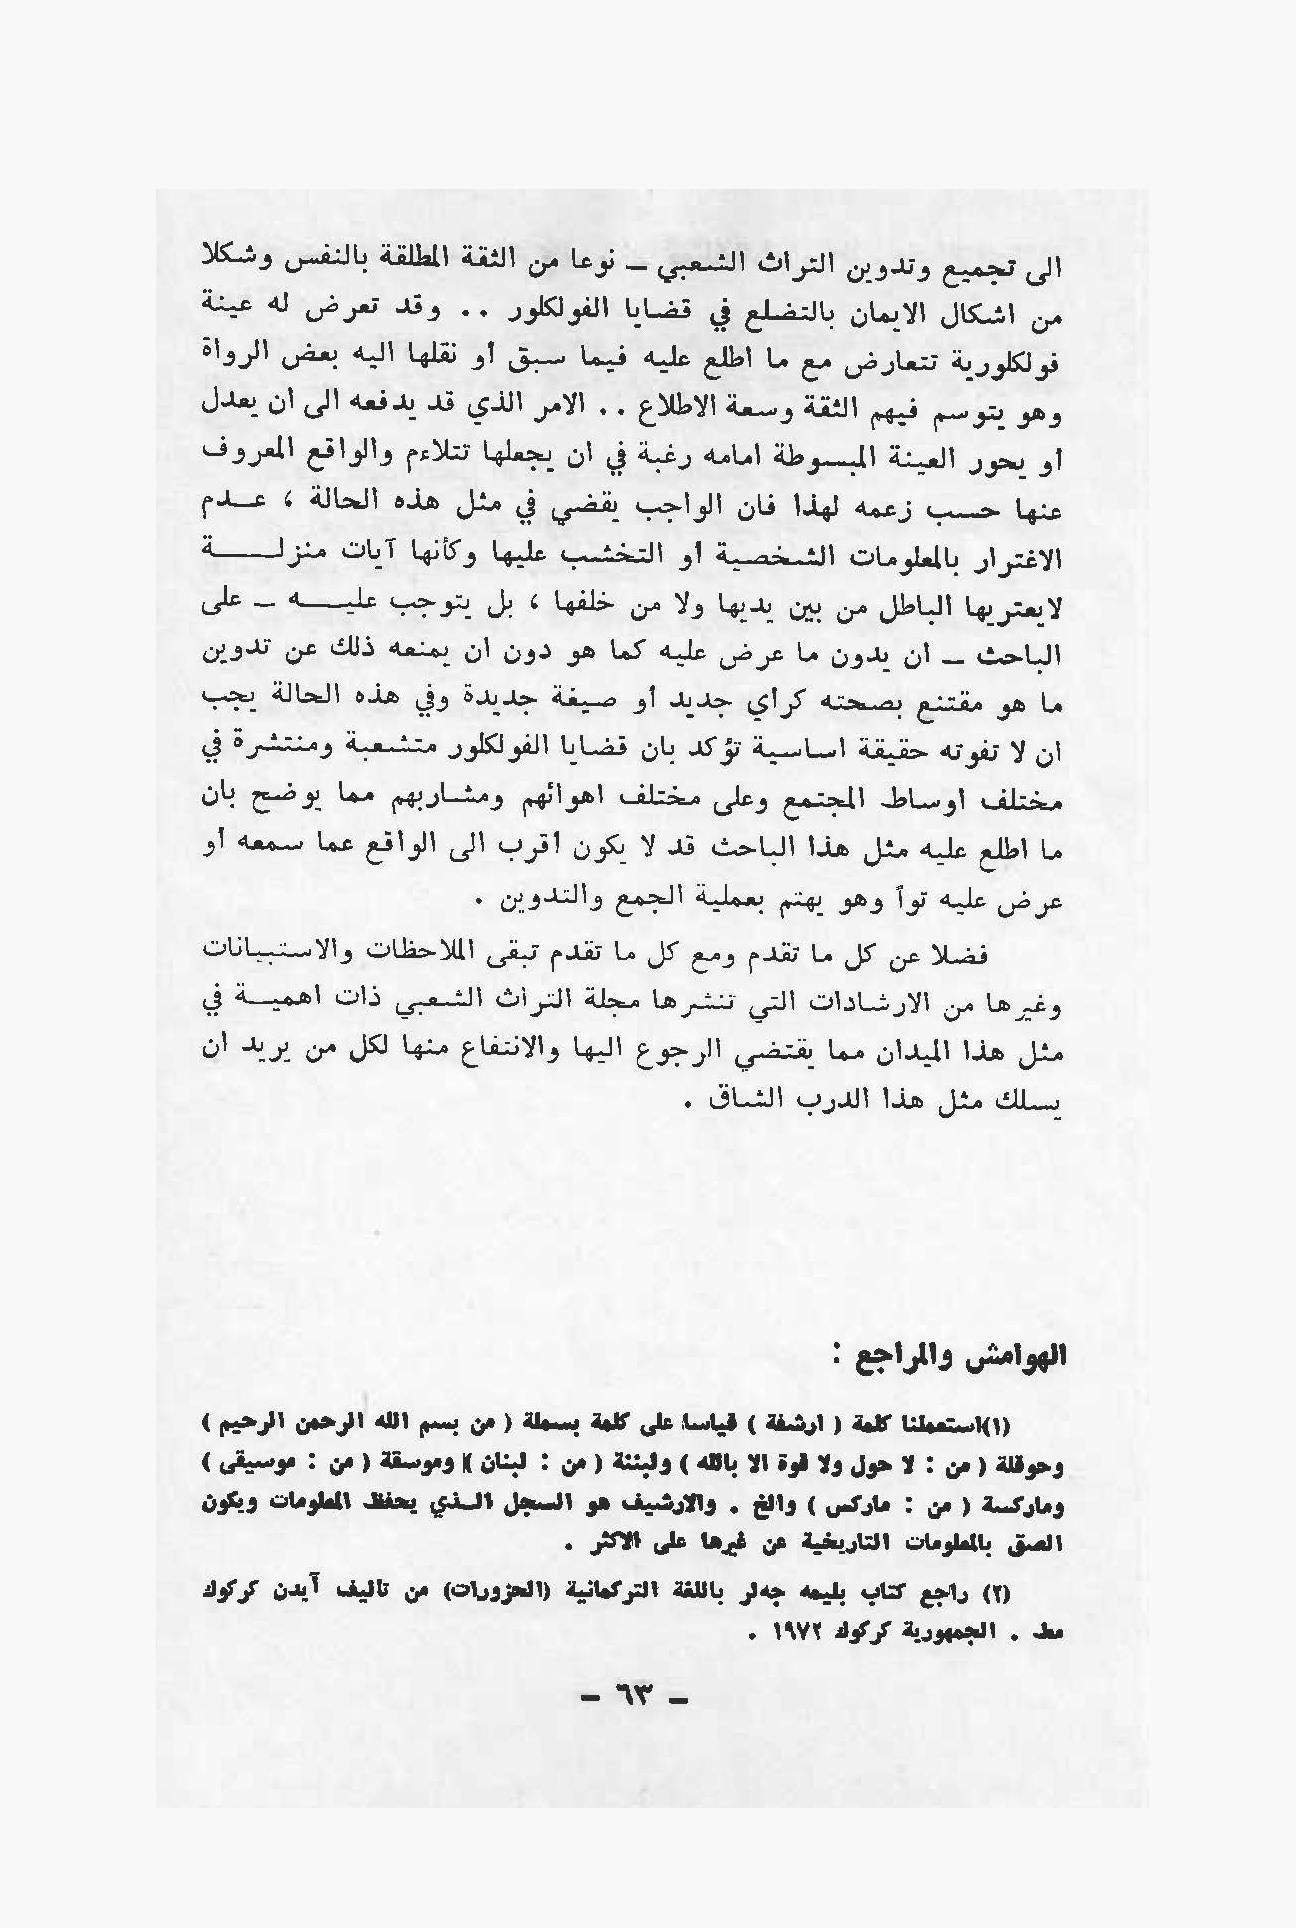 الى تجميع وتدوين التراث الشعبي ــ نوعا من الثقة المطلقة بالنفس وشكلا
من اشكال الايمان بالتضلع في قضايا الفولكلور .. وقد تعرض له عينة
فولكلورية تتعارض مع ما اطلع عليه فيما سبق أو نقلها اليه بعض الرواة
وهو يتوسم فيهم الثقة وسعة الاطلاع .. الامر الذي قد يدفعه الى ان يعدل
أو يحور العينة المبسوطة امامه رغبة في ان يجعلها تتلاءم والواقع المعروف
عنها حسب زعمه لهذا فان الواجب يقضي في مثل هذه الحالة ، عــدم
الاغترار بالمعلومات الشخصية أو التخشب عليها وكأنها آيات منزلـــــة
لايعتريها الباطل من بين يديها ولا من خلفها ، بل يتوجب عليـــه ــ على
الباحث ــ ان يدون ما عرض عليه كما هو دون ان يمنعه ذلك عن تدوين
ما هو مقتنع بصحته كرأي جديد أو صيغة جديدة وفي هذه الحالة يجب
ان لا تفوته حقيقة اساسية تؤكد بان قضايا الفولكلور متشعبة ومنتشرة في
مختلف اوساط المجتمع وعلى مختلف اهوائهم ومشاربهم مما يوضح بان
ما اطلع عليه مثل هذا الباحث قد لا يكون أقرب الى الواقع عما سمعه أو
عرض عليه توآ وهو يهتم بعملية الجمع والتدوين .
فضلا عن كل ما تقدم ومع كل ما تقدم تبقى الملاحظات والاستبيانات
وغيرها من الارشادات التي تنشرها مجلة التراث الشعبي ذات اهميــة في
مثل هذا الميدان مما يقتضي الرجوع اليها والانتفاع منها لكل من يريد ان
يسلك مثل هذا الدرب الشاق .
الهوامش والمراجع :
(١)استعملنا كلمة ( ارشفة ) قياسا على كلمة بسملة ( من بسم الله الرحمن الرحيم )
وحوقلة ( من : لا حول ولا قوة الا بالله ) ولبننة ( من : لبنان ) وموسقة ( من : موسيقى )
وماركسة ( من : ماركس ) والخ . والارشيف هو السجل الـذي يحفظ المعلومات ويكون
الصق بالمعلومات التاريخية عن غيرها على الاكثر .
(٢) راجع كتاب بليمه جهلر باللغة التركمانية (الحزورات) من تاليف آيدن كركوك
مط . الجمهورية كركوك ١٩٧٢ .
ــ ٦٣ ــ